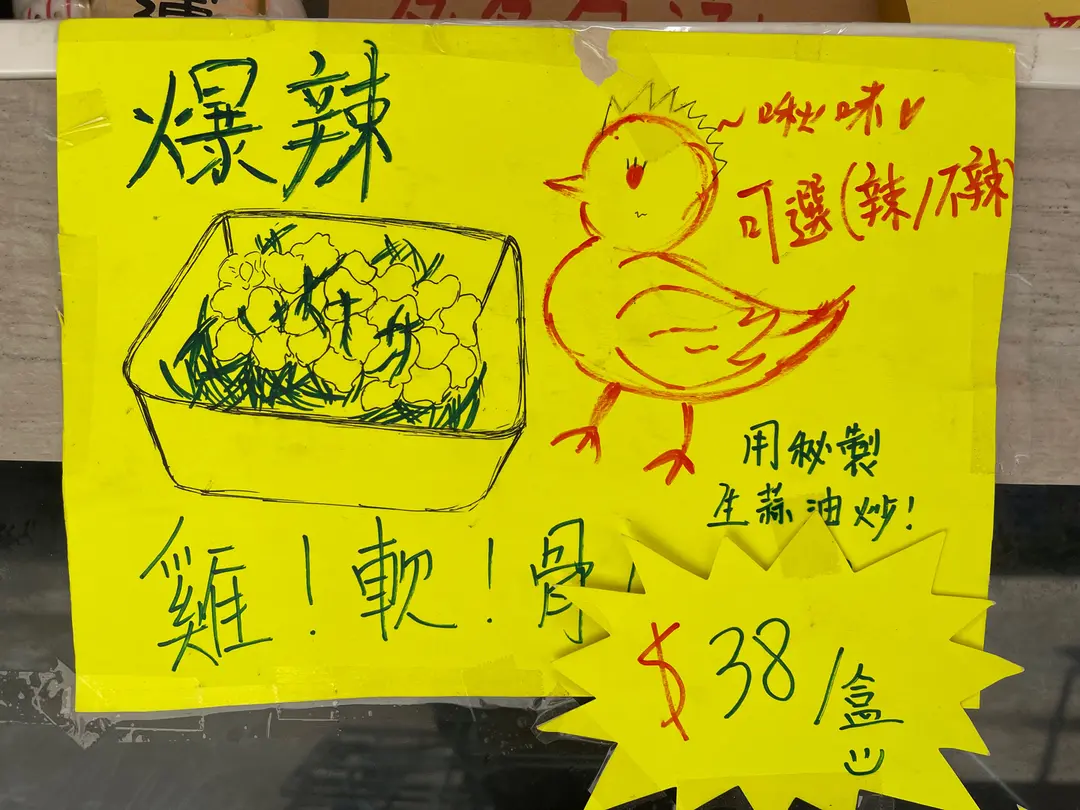 爆辣
~啾咪♥
可選(辣/不辣)
用秘製
生蒜油炒!
雞!軟!骨!
$38/盒